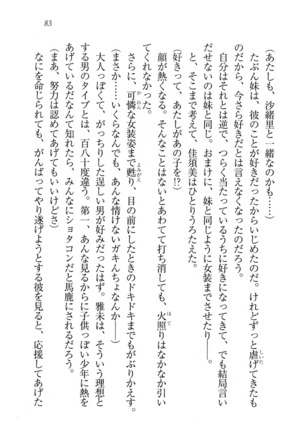 83
(あたしも、沙緒里と一緒なのかも……)
たぶん妹は、彼のことが好きだったからいじめたのだ。けれどずっと虐げてきたも
のだから、今さら好きだとは言えなくなったのだろう。
自分はそれとは逆で、つらく当たっているうちに好きになってきた。でも結局言い
出せないのは妹と同じ。おまけに、妹と同じように女装までさせたり――。
そこまで考えて、佳須美はひとりうろたえた。
(好きって、あたしがあの子を!?)
顔が熱くなる。そんなことはないとあわてて打ち消しても、火照りはなかなか引い
てくれなかった。
さらに、可憐な女装姿まで甦り、目の前にしたときのドキドキまでもがぶりかえす。
(まさか……いくらなんでも、あんな情けないガキんちょなんか――)
大人っぽくて、たくましい男が好みだったはず。雅未は、そういう理想と
する男のタイプとは、百八十度違う。第一、あんな見るからに子供っぽい少年に熱を
あげているだなんて知れたら、みんなにショタコンだと馬鹿にされるだろう。
(まあ、努力は認めてあげてもいいけどさ)
なにを命じられても、がんばってやり遂げようとする彼を見ると、応援してあげた